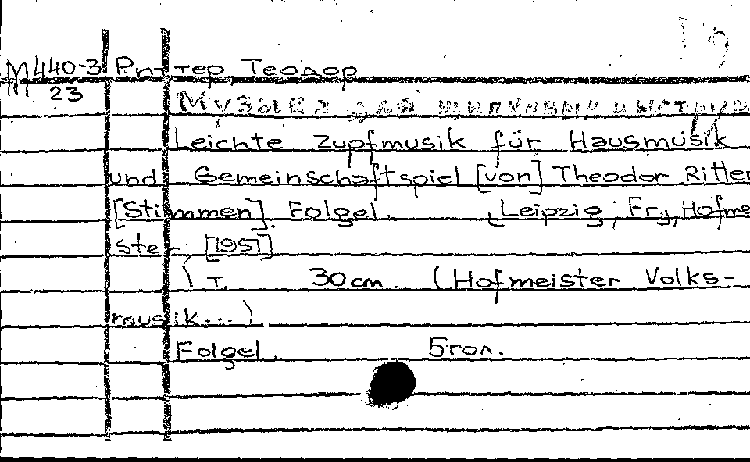 М440-3 Риттер Теодор
23
Музыка для щипковых инструм
Leichte Zupfmusik für Hausmusik
und Gemeinschaftspiel [von] Theodor Ritter
[Stimmen]. Folgel. Leipzig; Fr., Hofmei
ster [1951]
30cm. (Hofmeister Volks-
musik...)
Folgel. 5гол.